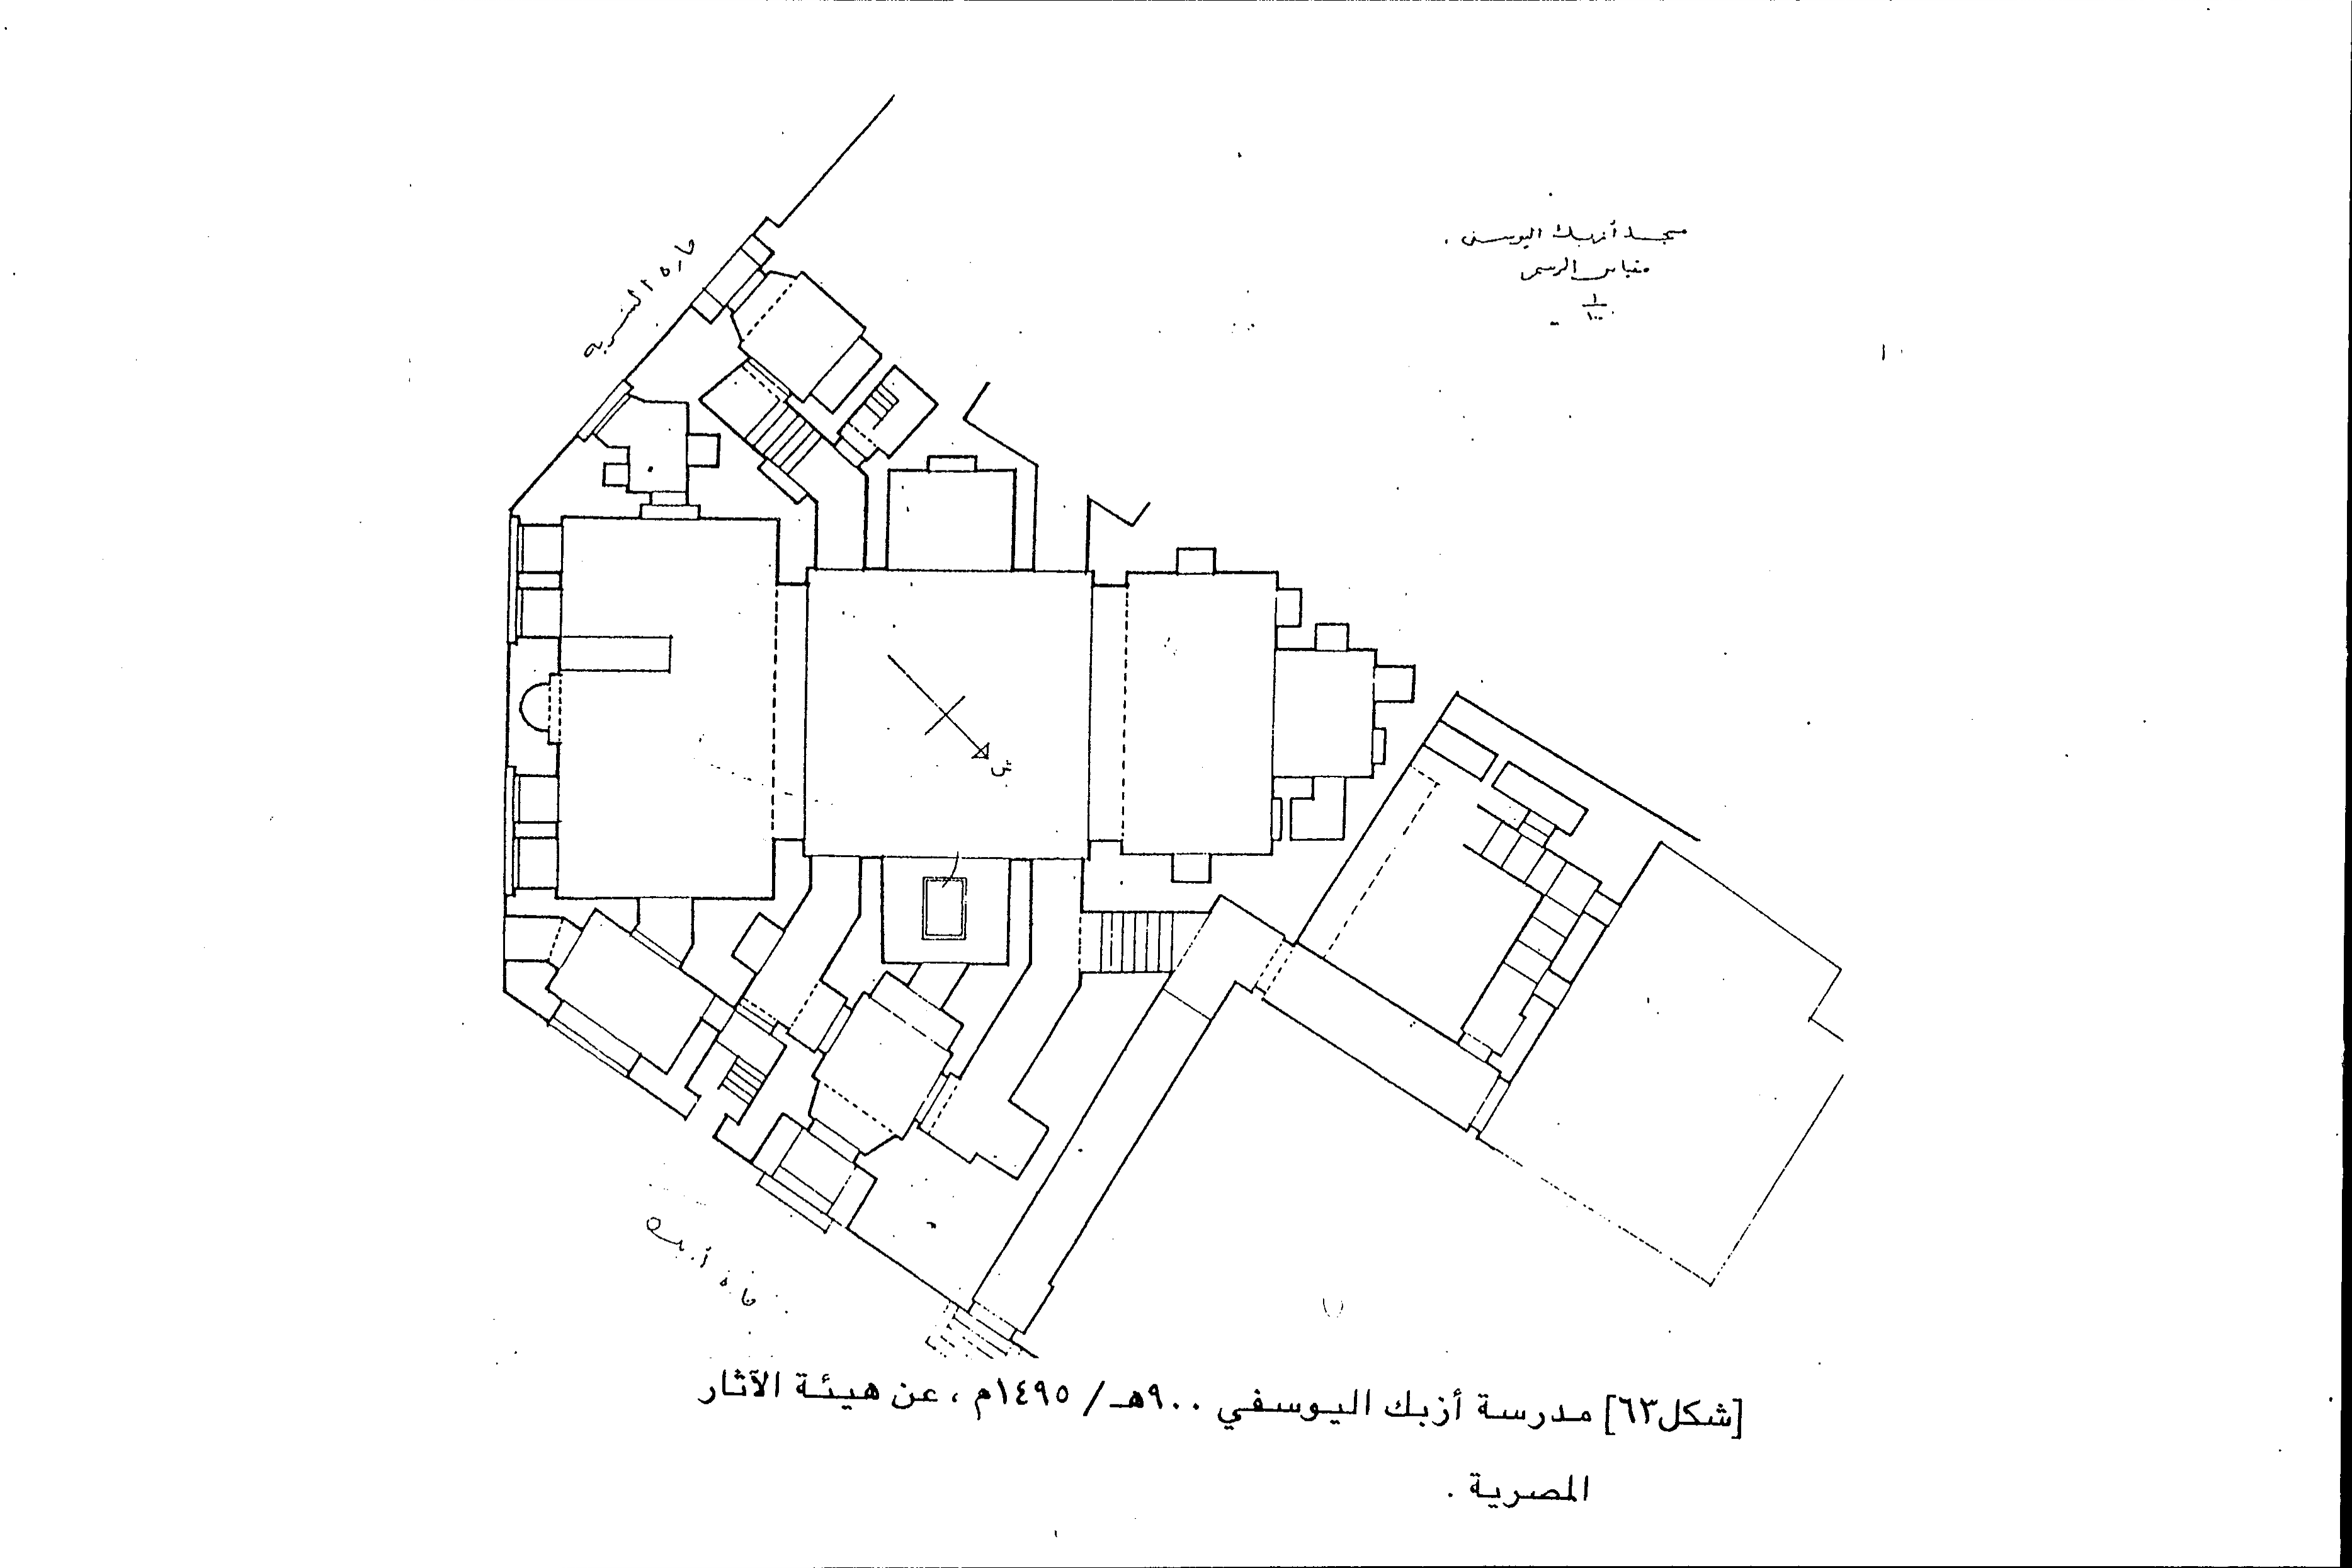 مسجد أزبك اليوسفى .
مقياس الرسم
١/١٠٠
حارة
حارة أزبك
ش
[شكل٦٣] مدرسة أزبك اليوسفي ٩٠٠هـ/ ١٤٩٥م ، عن هيئة الآثار
المصرية .